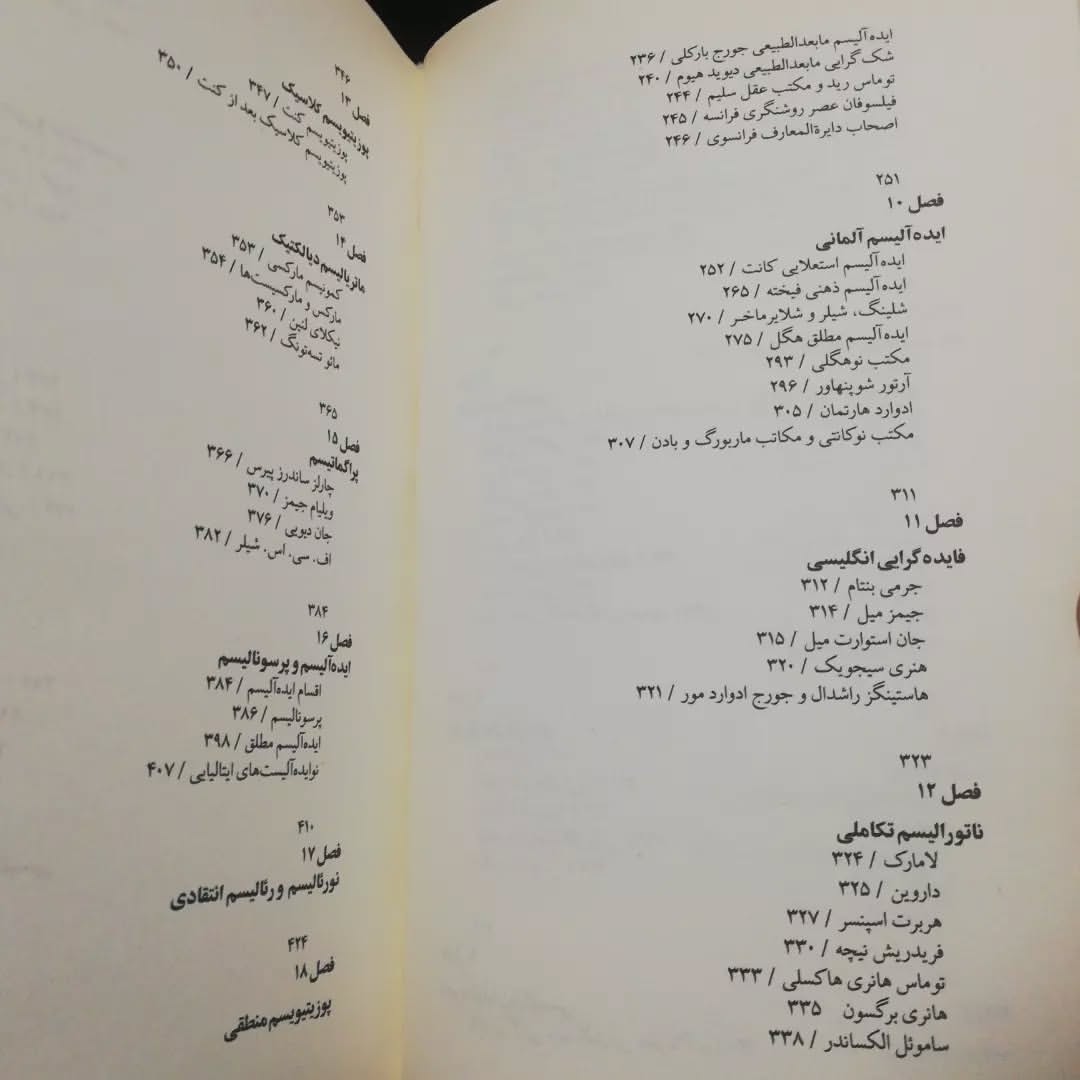 ایده‌آلیسم مابعدالطبیعی جورج بارکلی / ۲۳۶
شک‌گرایی مابعدالطبیعی دیوید هیوم / ۲۴۰
توماس رید و مکتب عقل سلیم / ۲۴۴
فیلسوفان عصر روشنگری فرانسه / ۲۴۵
اصحاب دایرةالمعارف فرانسوی / ۲۴۶
۲۵۱
فصل ۱۰
ایده‌آلیسم آلمانی
ایده‌آلیسم استعلایی کانت / ۲۵۲
ایده‌آلیسم ذهنی فیخته / ۲۶۵
شلینگ، شیلر و شلایرماخر / ۲۷۰
ایده‌آلیسم مطلق هگل / ۲۷۵
مکتب نوهگلی / ۲۹۳
آرتور شوپنهاور / ۲۹۶
ادوارد هارتمان / ۳۰۵
مکتب نوکانتی و مکاتب ماربورگ و بادن / ۳۰۷
۳۱۱
فصل ۱۱
فایده‌گرایی انگلیسی
جرمی بنتام / ۳۱۲
جیمز میل / ۳۱۴
جان استوارت میل / ۳۱۵
هنری سیجویک / ۳۲۰
هاستینگز راشدال و جورج ادوارد مور / ۳۲۱
۳۲۳
فصل ۱۲
ناتورالیسم تکاملی
لامارک / ۳۲۴
داروین / ۳۲۵
هربرت اسپنسر / ۳۲۷
فریدریش نیچه / ۳۳۰
توماس هانری هاکسلی / ۳۳۳
هانری برگسون ۳۳۵
ساموئل الکساندر / ۳۳۸
۳۴۶
فصل ۱۳
پوزیتیویسم کلاسیک
پوزیتیویسم کنت / ۳۴۷
پوزیتیویسم کلاسیک بعد از کنت / ۳۵۰
۳۵۳
فصل ۱۴
ماتریالیسم دیالکتیک
کمونیسم مارکسی / ۳۵۳
مارکس و مارکسیست‌ها / ۳۵۴
نیکلای لنین / ۳۶۰
مائو تسه‌تونگ / ۳۶۲
۳۶۵
فصل ۱۵
پراگماتیسم
چارلز ساندرز پیرس / ۳۶۶
ویلیام جیمز / ۳۷۰
جان دیویی / ۳۷۶
اف. سی. اس. شیلر / ۳۸۲
۳۸۴
فصل ۱۶
ایده‌آلیسم و پرسونالیسم
اقسام ایده‌آلیسم / ۳۸۴
پرسونالیسم / ۳۸۶
ایده‌آلیسم مطلق / ۳۹۸
نوایده‌آلیست‌های ایتالیایی / ۴۰۷
۴۱۰
فصل ۱۷
نورئالیسم و رئالیسم انتقادی
۴۲۴
فصل ۱۸
پوزیتیویسم منطقی